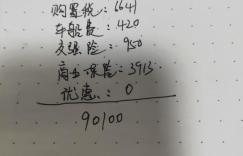 购置税: 6641
车船费: 420
交强险: 950
商业保险: 3913
优惠: 0
90100